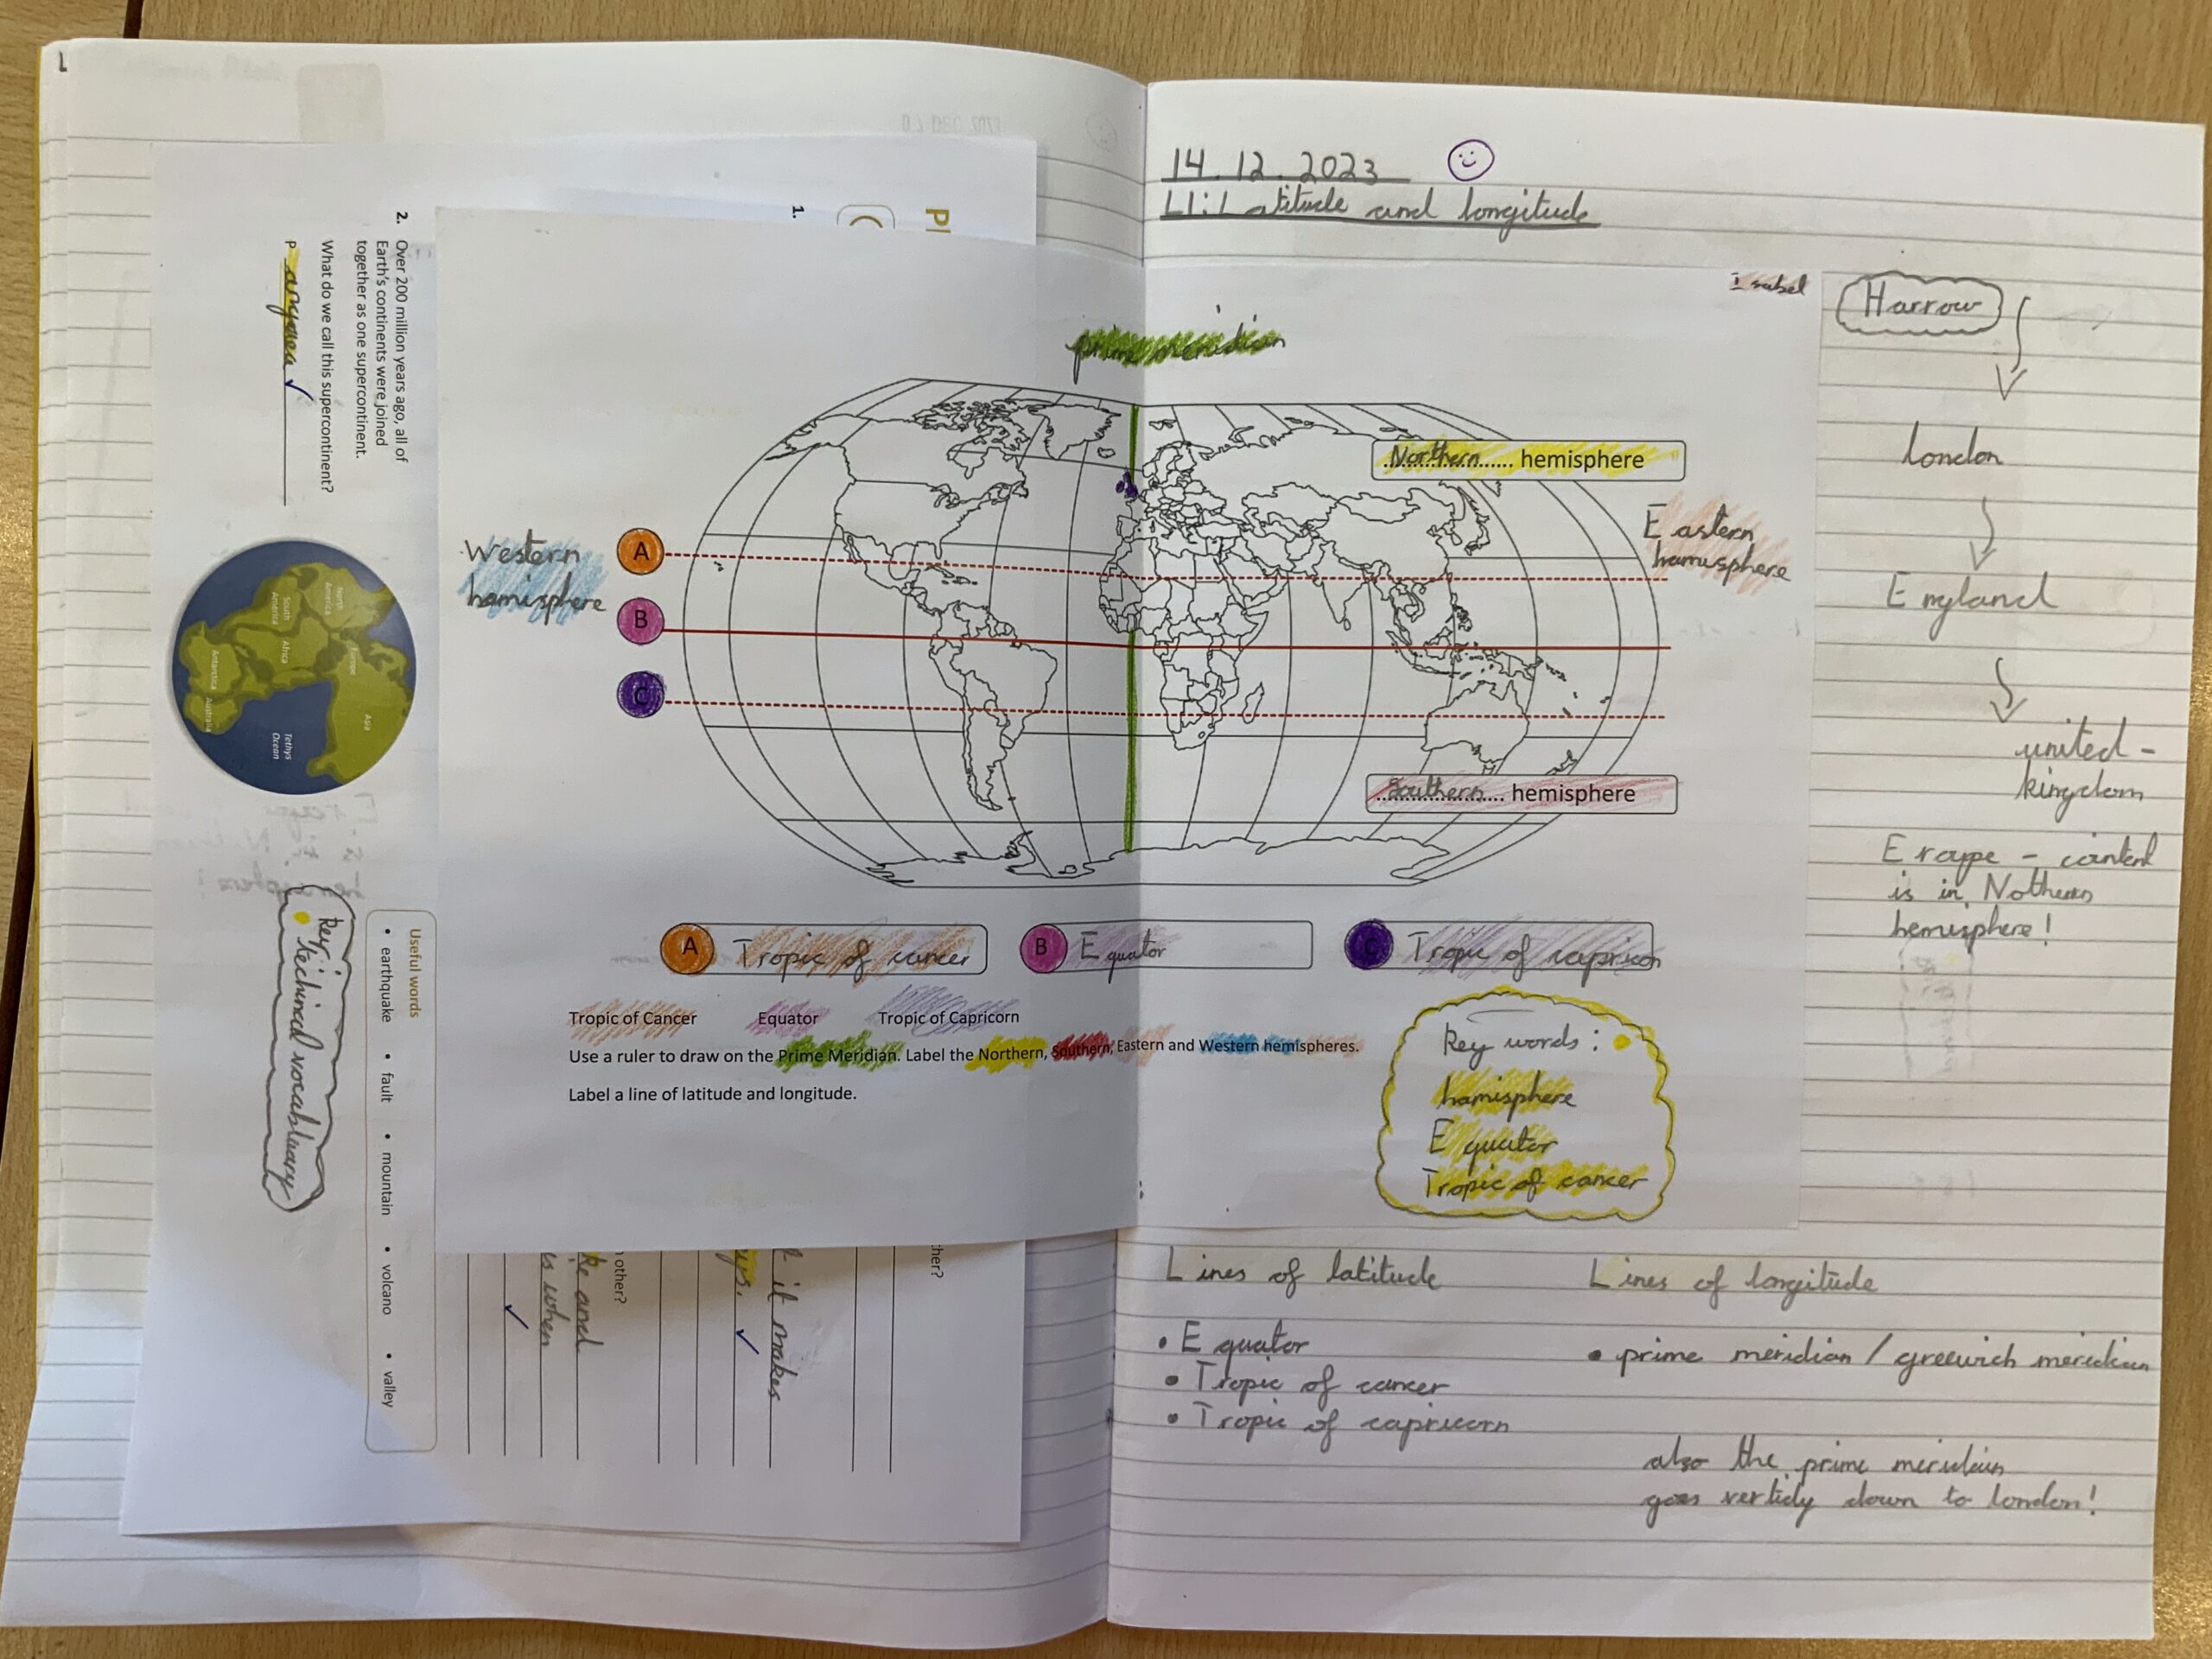 1
2. Over 200 million years ago, all of
Earth's continents were joined
together as one supercontinent.
What do we call this supercontinent?
Pangaea ✓
North America
Europe
Asia
South America
Africa
Antarctica
Australia
Tethys Ocean
Key:
techincal vocabluary
Useful words
• earthquake • fault • mountain • volcano • valley
1.
Pl
C
ther?
it makes
n other?
ke and
is when
14.12.2023
LI: Latitude and longitude
Isabel
prime meridian
Northern hemisphere
Western
hamisphere
Eastern
hamisphere
A
B
C
Southern hemisphere
A Tropic of cancer
B Equator
C Tropic of capricon
Tropic of Cancer Equator Tropic of Capricorn
Use a ruler to draw on the Prime Meridian. Label the Northern, Southern, Eastern and Western hemispheres.
Label a line of latitude and longitude.
Key words:
hamisphere
Equator
Tropic of cancer
Harrow
london
England
united-
kingdom
Erope -
is in Nothern
hemisphere!
Lines of latitude
• Equator
• Tropic of cancer
• Tropic of capricorn
Lines of longitude
• prime meridian / greewich meridian
also the prime meridian
goes down to london!